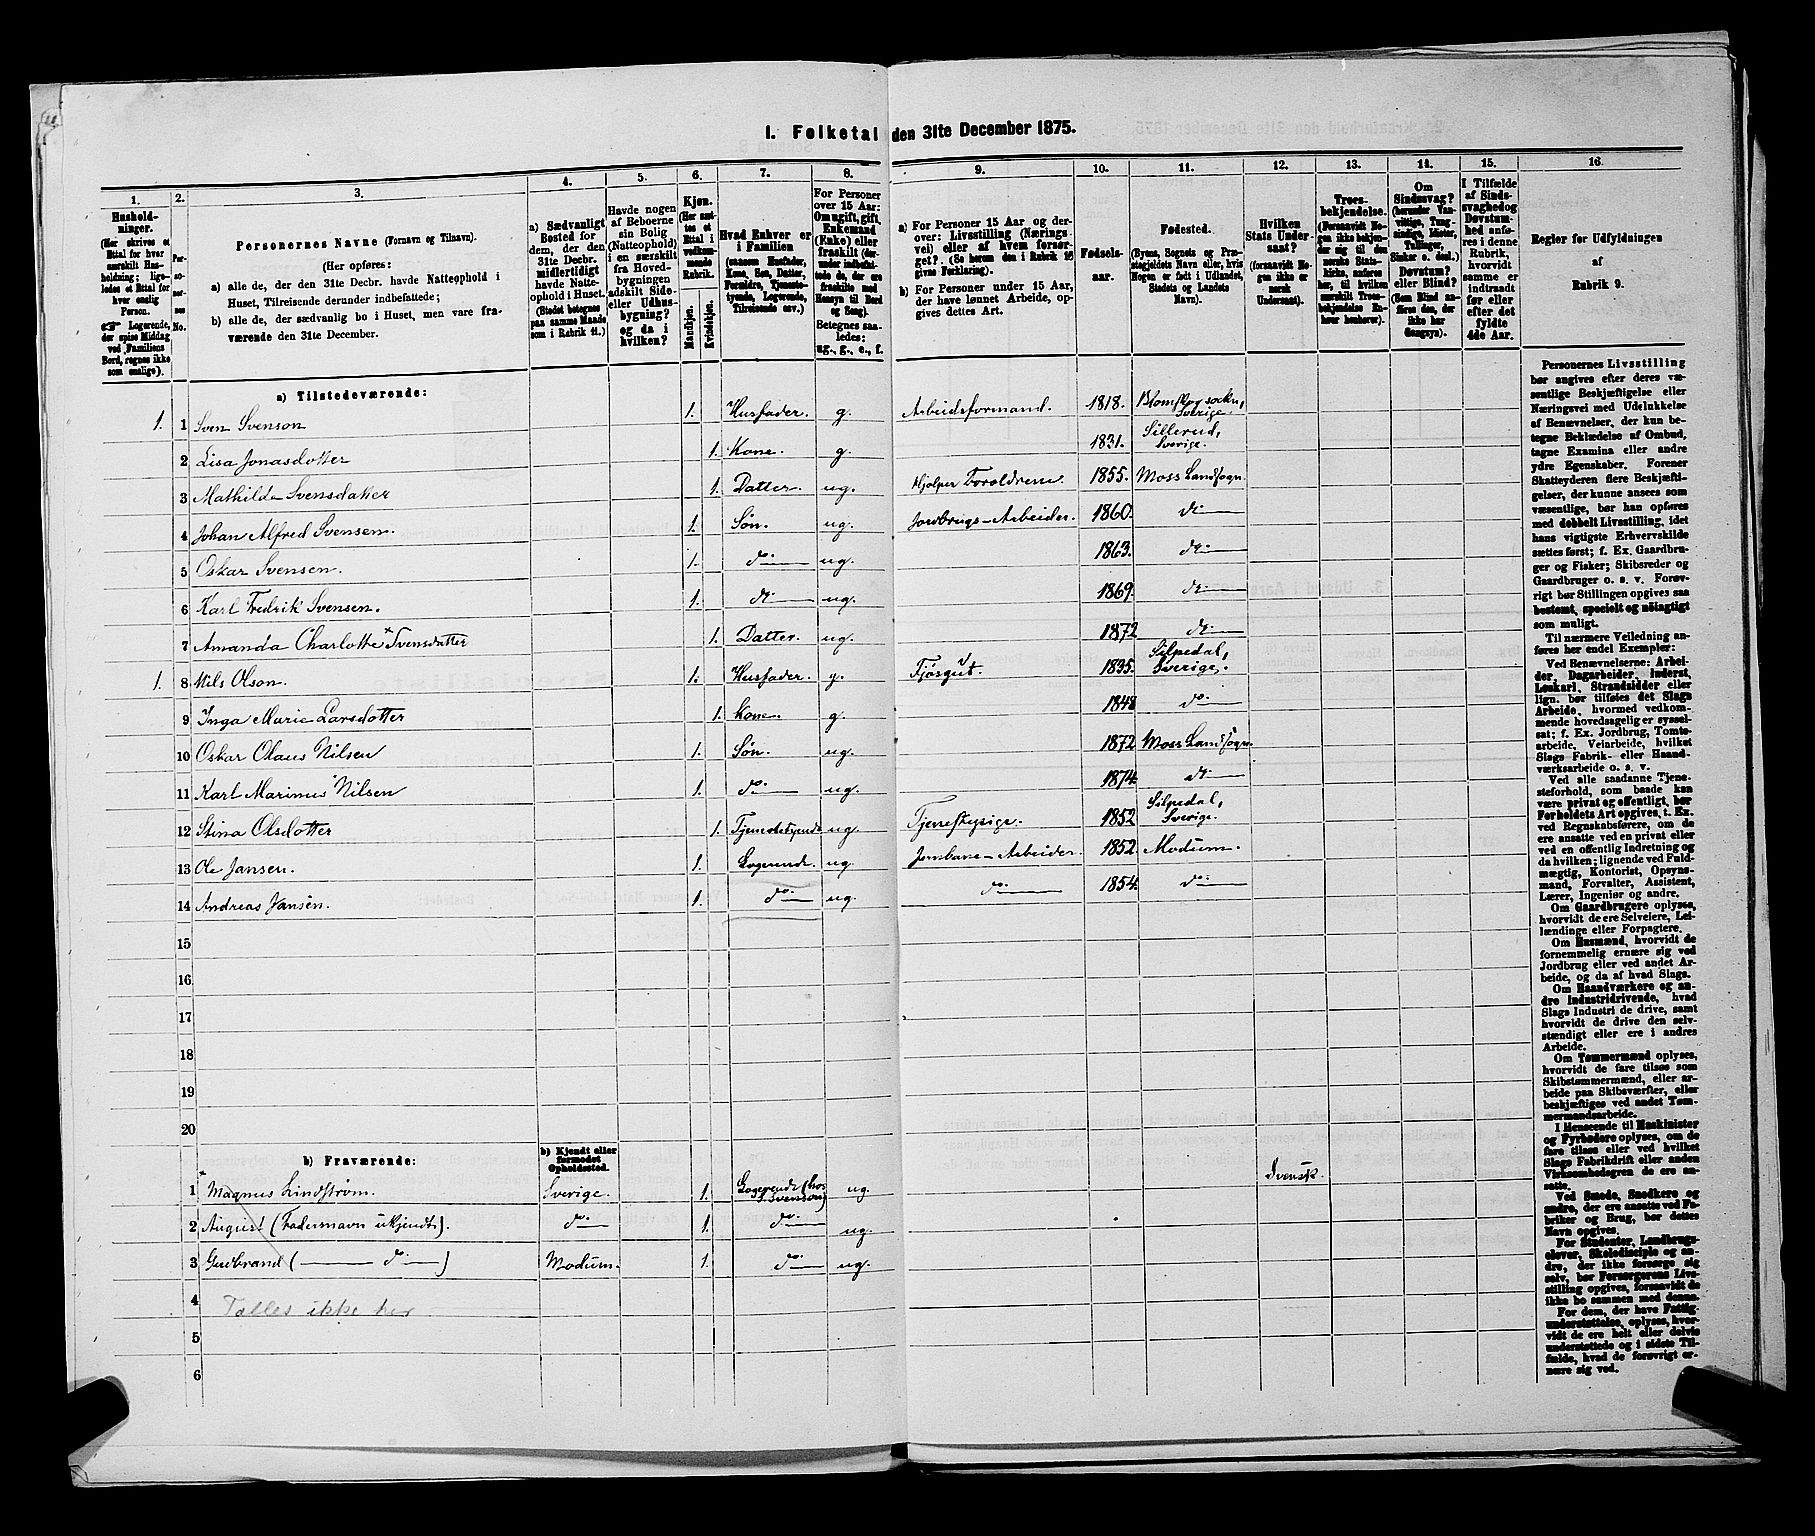 1. Folketal den 31te December 1875.
1. 2. 3. 4. 5. 6. 7. 8. 9. 10. 11. 12. 13. 14. 15. 16.
Personernes Navne (Fornavn og Tilnavn).
(Her opføres:
a) alle de, der den 31te Decbr. havde Natteophold i
Huset, Tilreisende derunder indbefattede;
b) alle de, der sædvanlig bo i Huset, men vare fra-
værende den 31te December.
a) Sædvanligt
Bosted for
dem, der den
31te Decbr.
midlertidigt
havde Natte-
ophold i Huset.
(Stedet betegnes
paa samme Maade
som i Rubrik 11.)
Havde nogen
af Beboerne
sin Bolig
(Natteophold)
i en særskilt
fra Hoved-
bygningen
adskilt Side-
eller Udhus-
bygning?
og da i
hvilken?
Kjøn.
Mandkjøn.
Kvindekjøn.
Hvad Enhver er
i Familien
(saasom Husfader,
Kone, Søn, Datter,
Forældre, Tjeneste-
tyende, Logerende,
Tilreisende osv.)
For Personer
over 15 Aar:
Om ugift, gift,
Enkemand
(Enke) eller
fraskilt
Betegnes saa-
ledes:
ug., g., e., f.
a) For Personer 15 Aar og der-
over: Livsstilling (Nærings-
vei) eller af hvem forsør-
get?. (Se herom den i Rubrik 16
givne Forklaring).
b) For Personer under 15 Aar,
der have lønnet Arbeide, op-
gives dettes Art.
Fødsels-
aar.
Fødested.
(Byens, Sognets og Præ-
stegjeldets Navn eller, hvis
Nogen er født i Udlandet,
Stedets og Landets
Navn).
Hvilken
Stats Under-
saat?
(forsaavidt No-
gen ikke er
norsk
Undersaat).
Troes-
bekjendelse.
Regler for Udfyldningen
af
Rubrik 9.
a) Tilstedeværende:
1. 1 Sven Svenson 1. Husfader. g. Arbeidsformand. 1818. Blomskog sockn, Sverige.
2 Lisa Jonasdotter 1. Kone. g. 1831. Sillerud, Sverige.
3 Mathilde Svensdatter 1. Datter. ug. Hjelper Forældrene 1855. Moss Landsogn.
4 Johan Alfred Svensen. 1. Søn. ug. Jordbrugs-Arbeider. 1860. do
5 Oskar Svensen. 1. do ug. 1863. do
6 Karl Fredrik Svensen. 1. do ug. 1869. do
7 Amanda Charlotte Svensdatter 1. Datter. ug. 1872 do
1. 8 Nils Olson. 1. Husfader. g. Fjøsgut. 1835. Silpedal, Sverige.
9 Inga Marie Larsdotter 1. Kone. g. 1848 do
10 Oskar Olaus Nilsen 1. Søn. ug. 1872 Moss Landsogn.
11 Karl Marinus Nilsen 1. do ug. 1874. do
12 Stina Olsdotter 1. Tjenestetyende ug. Tjenestepige. 1852 Silpedal, Sverige.
13 Ole Jansen. 1. Logerende. ug. Jernbane-Arbeider. 1852. Modum.
14 Andreas Jansen. 1. do ug. do 1854. do
15
16
17
18
19
20
b) Fraværende:
b) Kjendt eller
formodet
Opholdssted.
1 Magnus Lindstrøm. Sverige. 1. Logerende (hos S. Svensson) ug. Svensk.
2 August (Fadernavn ukjendt). do 1. do ug.
3 Gudbrand ( do ) Modum. 1. do ug.
4 Tælles ikke her
5
6
Personernes Livsstilling
bør angives efter deres væ-
sentlige Beskjæftigelse eller
Næringsvei med Udelukkelse
af Benævnelser, der kun be-
tegne Beklædelse af Ombud,
tagne Examina eller andre
ydre Egenskaber. Forener
Skatteyderen flere Beskjæfti-
gelser, der kunne ansees som
væsentlige, bør han opføres
med dobbelt Livsstilling, idet
hans vigtigste Erhvervskilde
sættes først; f. Ex. Gaardbru-
ger og Fisker; Skibsreder og
Gaardbruger o. s. v. Forøv-
rigt bør Stillingen opgives saa
bestemt, specielt og nöiagtigt
som muligt.
Til nærmere Veiledning an-
føres her endel Exempler:
Ved Benævnelserne: Arbei-
der, Dagarbeider, Inderst,
Løskarl, Strandsidder eller
lign. bør tilføies det Slags
Arbeide, hvormed vedkom-
mende hovedsagelig er syssel-
sat; f. Ex. Jordbrug, Tomte-
arbeide, Veiarbeide, hvilket
Slags Fabrik- eller Haand-
værksarbeide o. s. v.
Ved alle saadanne Tjene-
steforhold, som baade kan
være privat og offentligt, bør
Forholdets Art opgives, t. Ex.
ved Regnskabsførere, om de
ere ansatte ved en privat eller
ved en offentlig Indretning og
da hvilken; lignende ved Fuld-
mægtig, Kontorist, Opsyns-
mand, Forvalter, Assistent,
Lærer, Ingeniør og andre.
Om Gaardbrugere oplyses,
hvorvidt de ere Selveiere, Lei-
lændinge eller Forpagtere.
Om Husmænd, hvorvidt de
fornemmelig ernære sig ved
Jordbrug eller ved andet Ar-
beide, og da af hvad Slags.
Om Haandværkere og an-
dre Industridrivende, hvad
Slags Industri de drive, samt
hvorvidt de drive den selv-
stændigt eller ere i andres
Arbeide.
Om Tømmermænd oplyses,
hvorvidt de fare tilsøs som
Skibstømmermænd, eller ar-
beide paa Skibsværfter, eller
beskjæftiges ved andet Tøm-
mermandsarbeide.
I Henseende til Maskinister
og Fyrbødere oplyses, om de
fare tilsøs eller ved hvilket
Slags Fabrikdrift eller anden
Virksomhedsgren de ere an-
satte.
Ved Smede, Snedkere og
andre, der ere ansatte ved Fa-
briker og Brug, bør dettes
Navn opgives.
For Studenter, Landbrugs-
elever, Skoledisciple og an-
dre, der ikke forsørge sig
selv, bør Forsørgerens Livs-
stilling opgives, forsaavidt de
ikke bo sammen med denne.
For dem, der have Fattig-
understøttelse, oplyses, hvor-
vidt de ere helt eller delvis
understøttede og i sidste Til-
fælde, hvad de forøvrigt er-
nære sig ved.